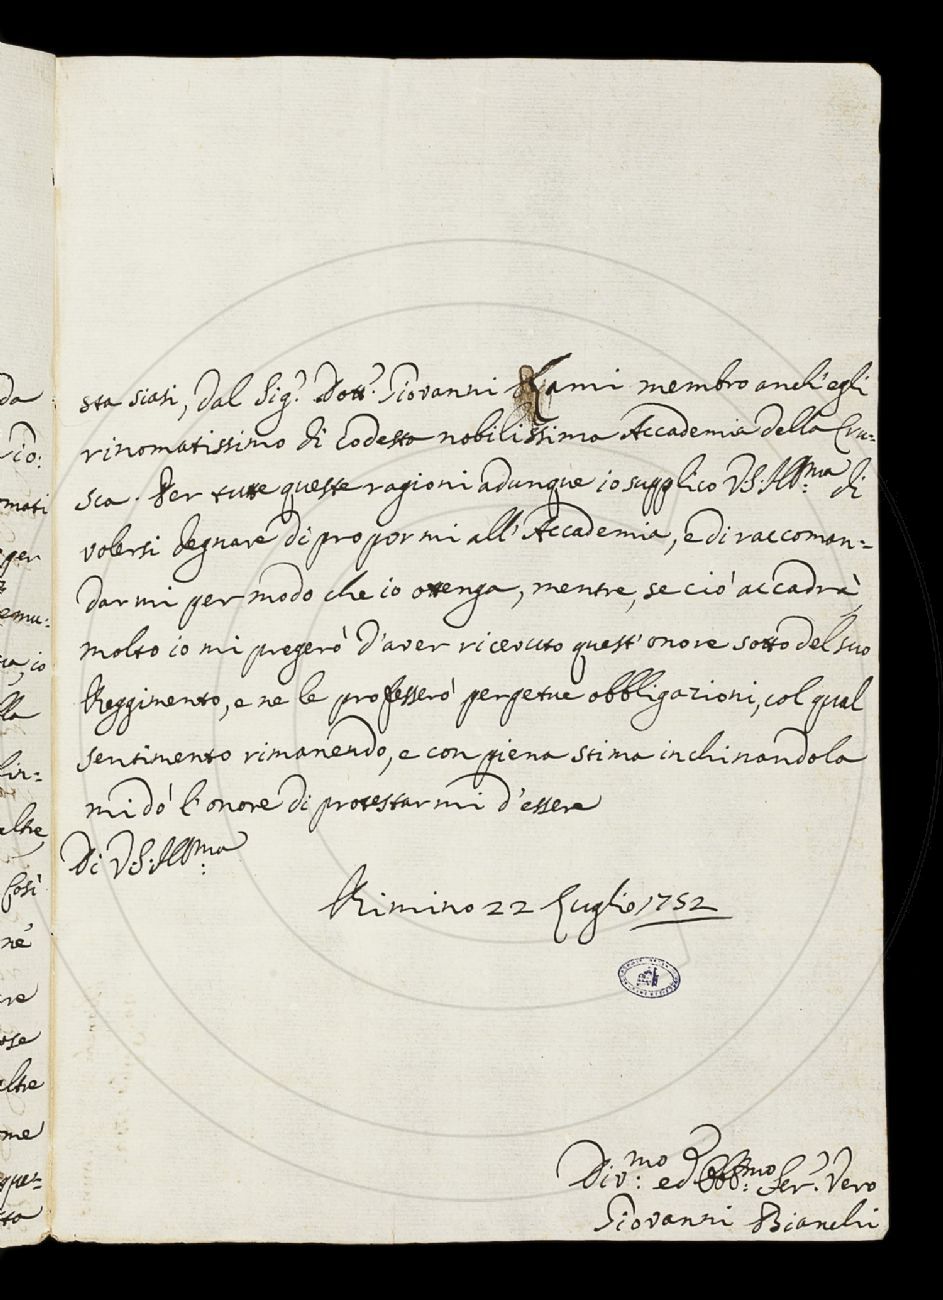 sta siasi, dal Sig.r Dott.r Giovanni Lami membro anch'egli
rinomatissimo di codesta nobilissima Accademia della Cru=
sca. Per tutte queste ragioni adunque io supplico V.S. Ill:ma di
volersi degnare di propormi all'Accademia, e di raccoman=
darmi per modo che io ottenga, mentre, se ciò accadrà,
molto io mi pregerò d'aver ricevuto quest'onore sotto del suo
Reggimento, e ne le professerò perpetue obbligazioni, col qual
sentimento rimanendo, e con piena stima inchinandola
mi dò l'onore di protestarmi d'essere
Di V.S. Ill:ma
Rimino 22 Luglio 1752
Div:mo ed Obb:mo Ser.r Vero
Giovanni Bianchi